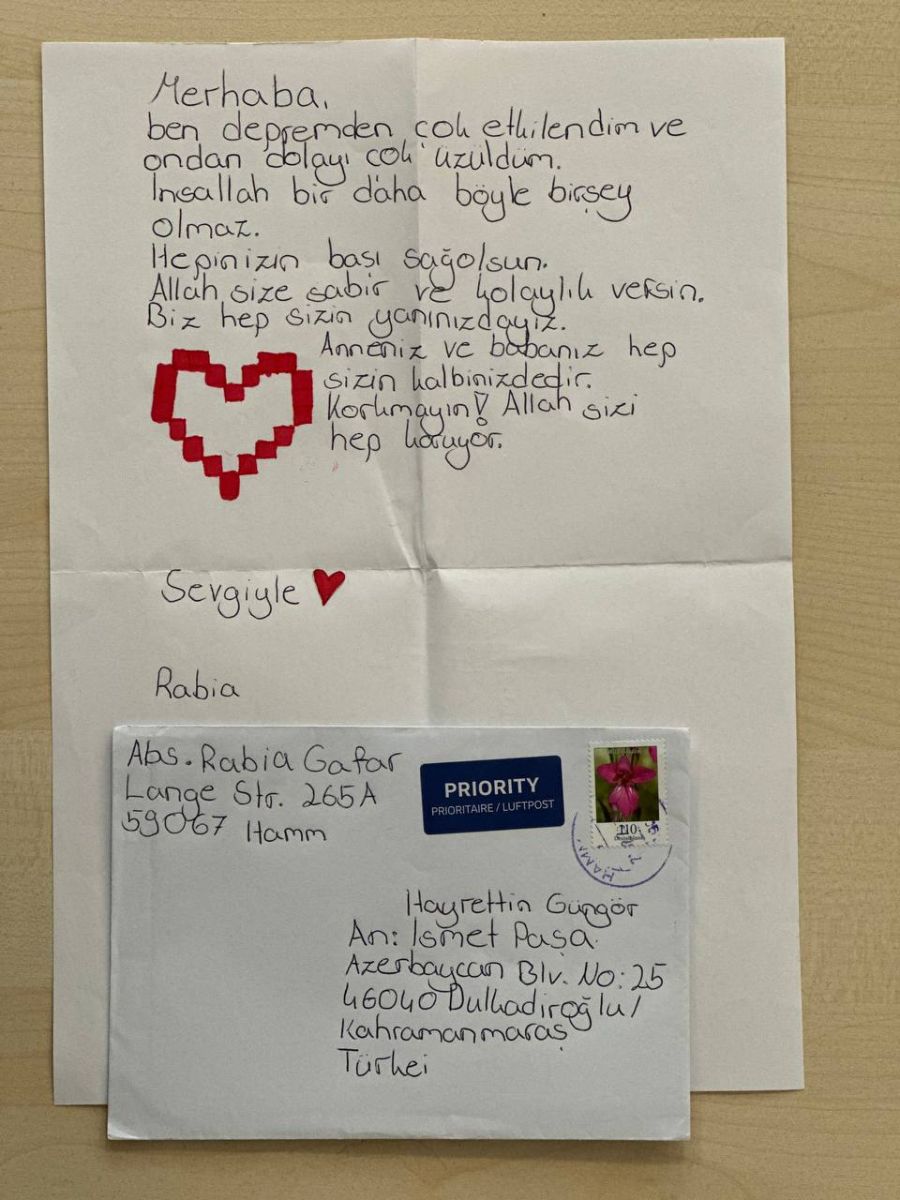 Merhaba,
ben depremden çok etkilendim ve
ondan dolayı çok üzüldüm.
Insallah bir daha böyle birşey
olmaz.
Hepinizin bası sağolsun.
Allah size sabir ve kolaylık versin.
Biz hep sizin yanınızdayız.
Anneniz ve babanız hep
sizin kalbinizdedir.
Korkmayın! Allah sizi
hep koruyor.
Sevgiyle
Rabia
Abs. Rabia Gafar
Lange Str. 265A
59067 Hamm
PRIORITY
PRIORITAIRE / LUFTPOST
110
Deutschland
HAMM
Hayrettin Güngör
An: Ismet Paşa
Azerbaycan Blv. No: 25
46040 Dulkadiroğlu/
Kahramanmaraş
Türkei